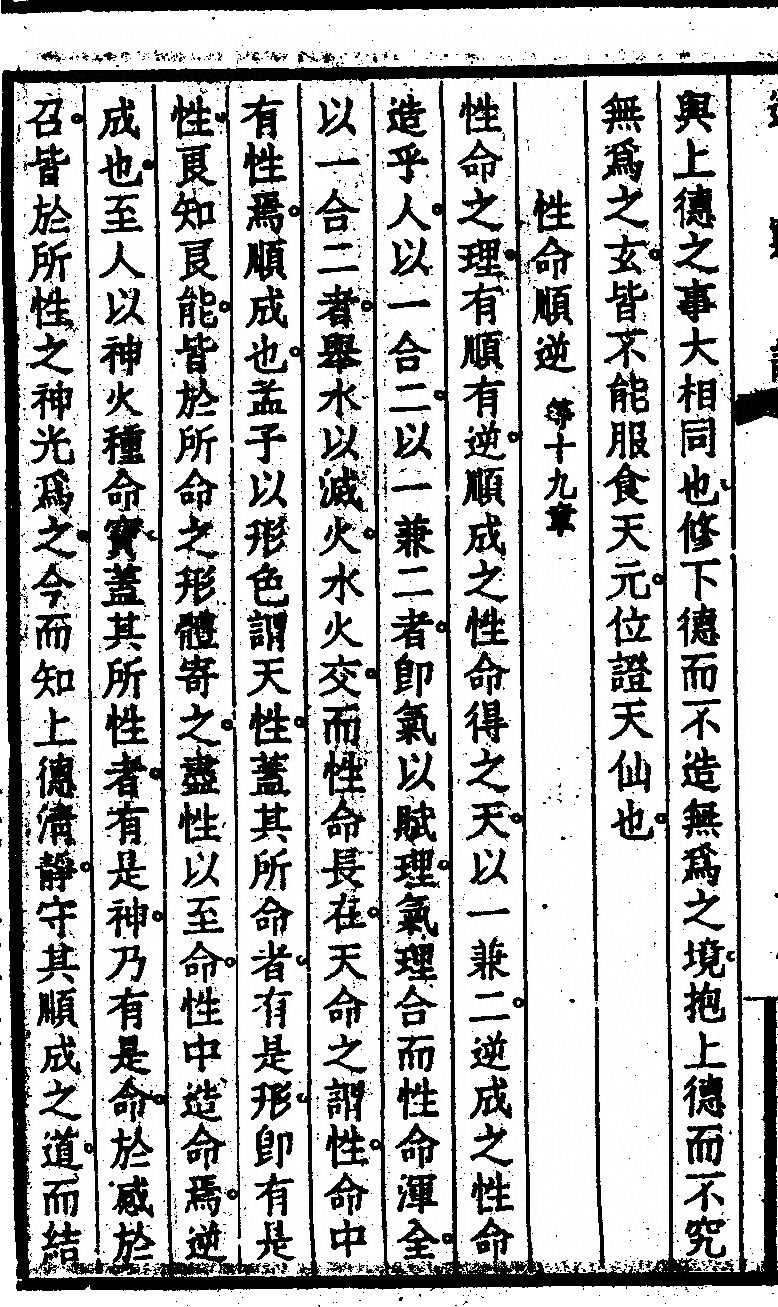 與上德之事大相同也修下德而不造無爲之境抱上德而不究
無爲之玄皆不能服食天元位證天仙也
性命順逆 第十九章
性命之理有順有逆順成之性命得之天以一兼二逆成之性命
造乎人以一合二以一兼二者卽氣以賦理氣理合而性命渾全
以一合二者舉水以滅火水火交而性命長在天命之謂性命中
有性焉順成也孟子以形色謂天性蓋其所命者有是形卽有是
性良知良能皆於所命之形體寄之盡性以至命性中造命焉逆
成也至人以神火種命寶蓋其所性者有是神乃有是命於感於
召皆於所性之神光爲之今而知上德清靜守其順成之道而結